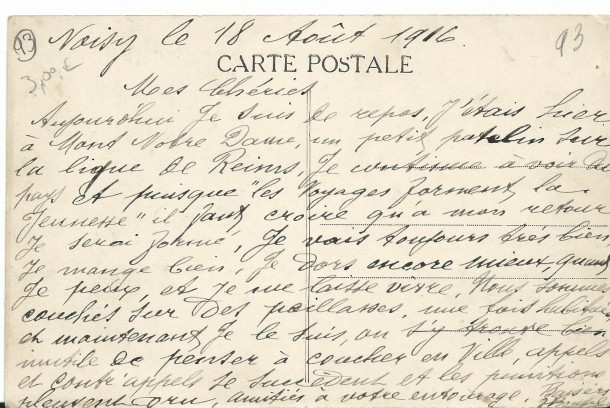 93
Noisy le 18 Août 1916
93
3,00 €
CARTE POSTALE
Mes Chéries
Aujourd'hui Je suis de repos, J'étais hier
à Mont Notre Dame, un petit patelin sur
la ligne de Reims, Je continue à voir du
pays et puisque "les Voyages forment la
Jeunesse" il faut croire qu'à mon retour
Je serai formé, Je vais toujours très bien
Je mange bien, Je dors encore mieux, quand
Je peux, et Je me laisse vivre, Nous sommes
couchés sur des paillasses, une fois habitués
et maintenant Je le suis, on s'y trouve bien
inutile de penser à coucher en Ville, appels
et contr'appels se succèdent et les punitions
pleuvent dru, amitiés à votre entourage,